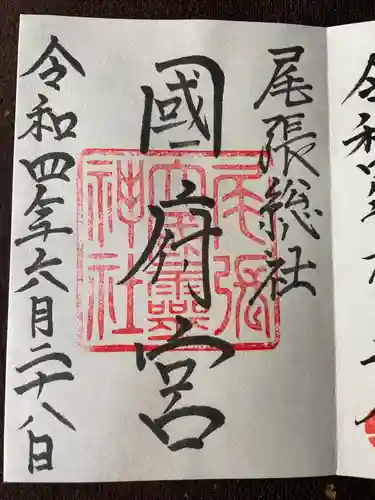 尾張総社
國府宮
令和四年六月二十八日
尾張
大國霊
神社
令和四年